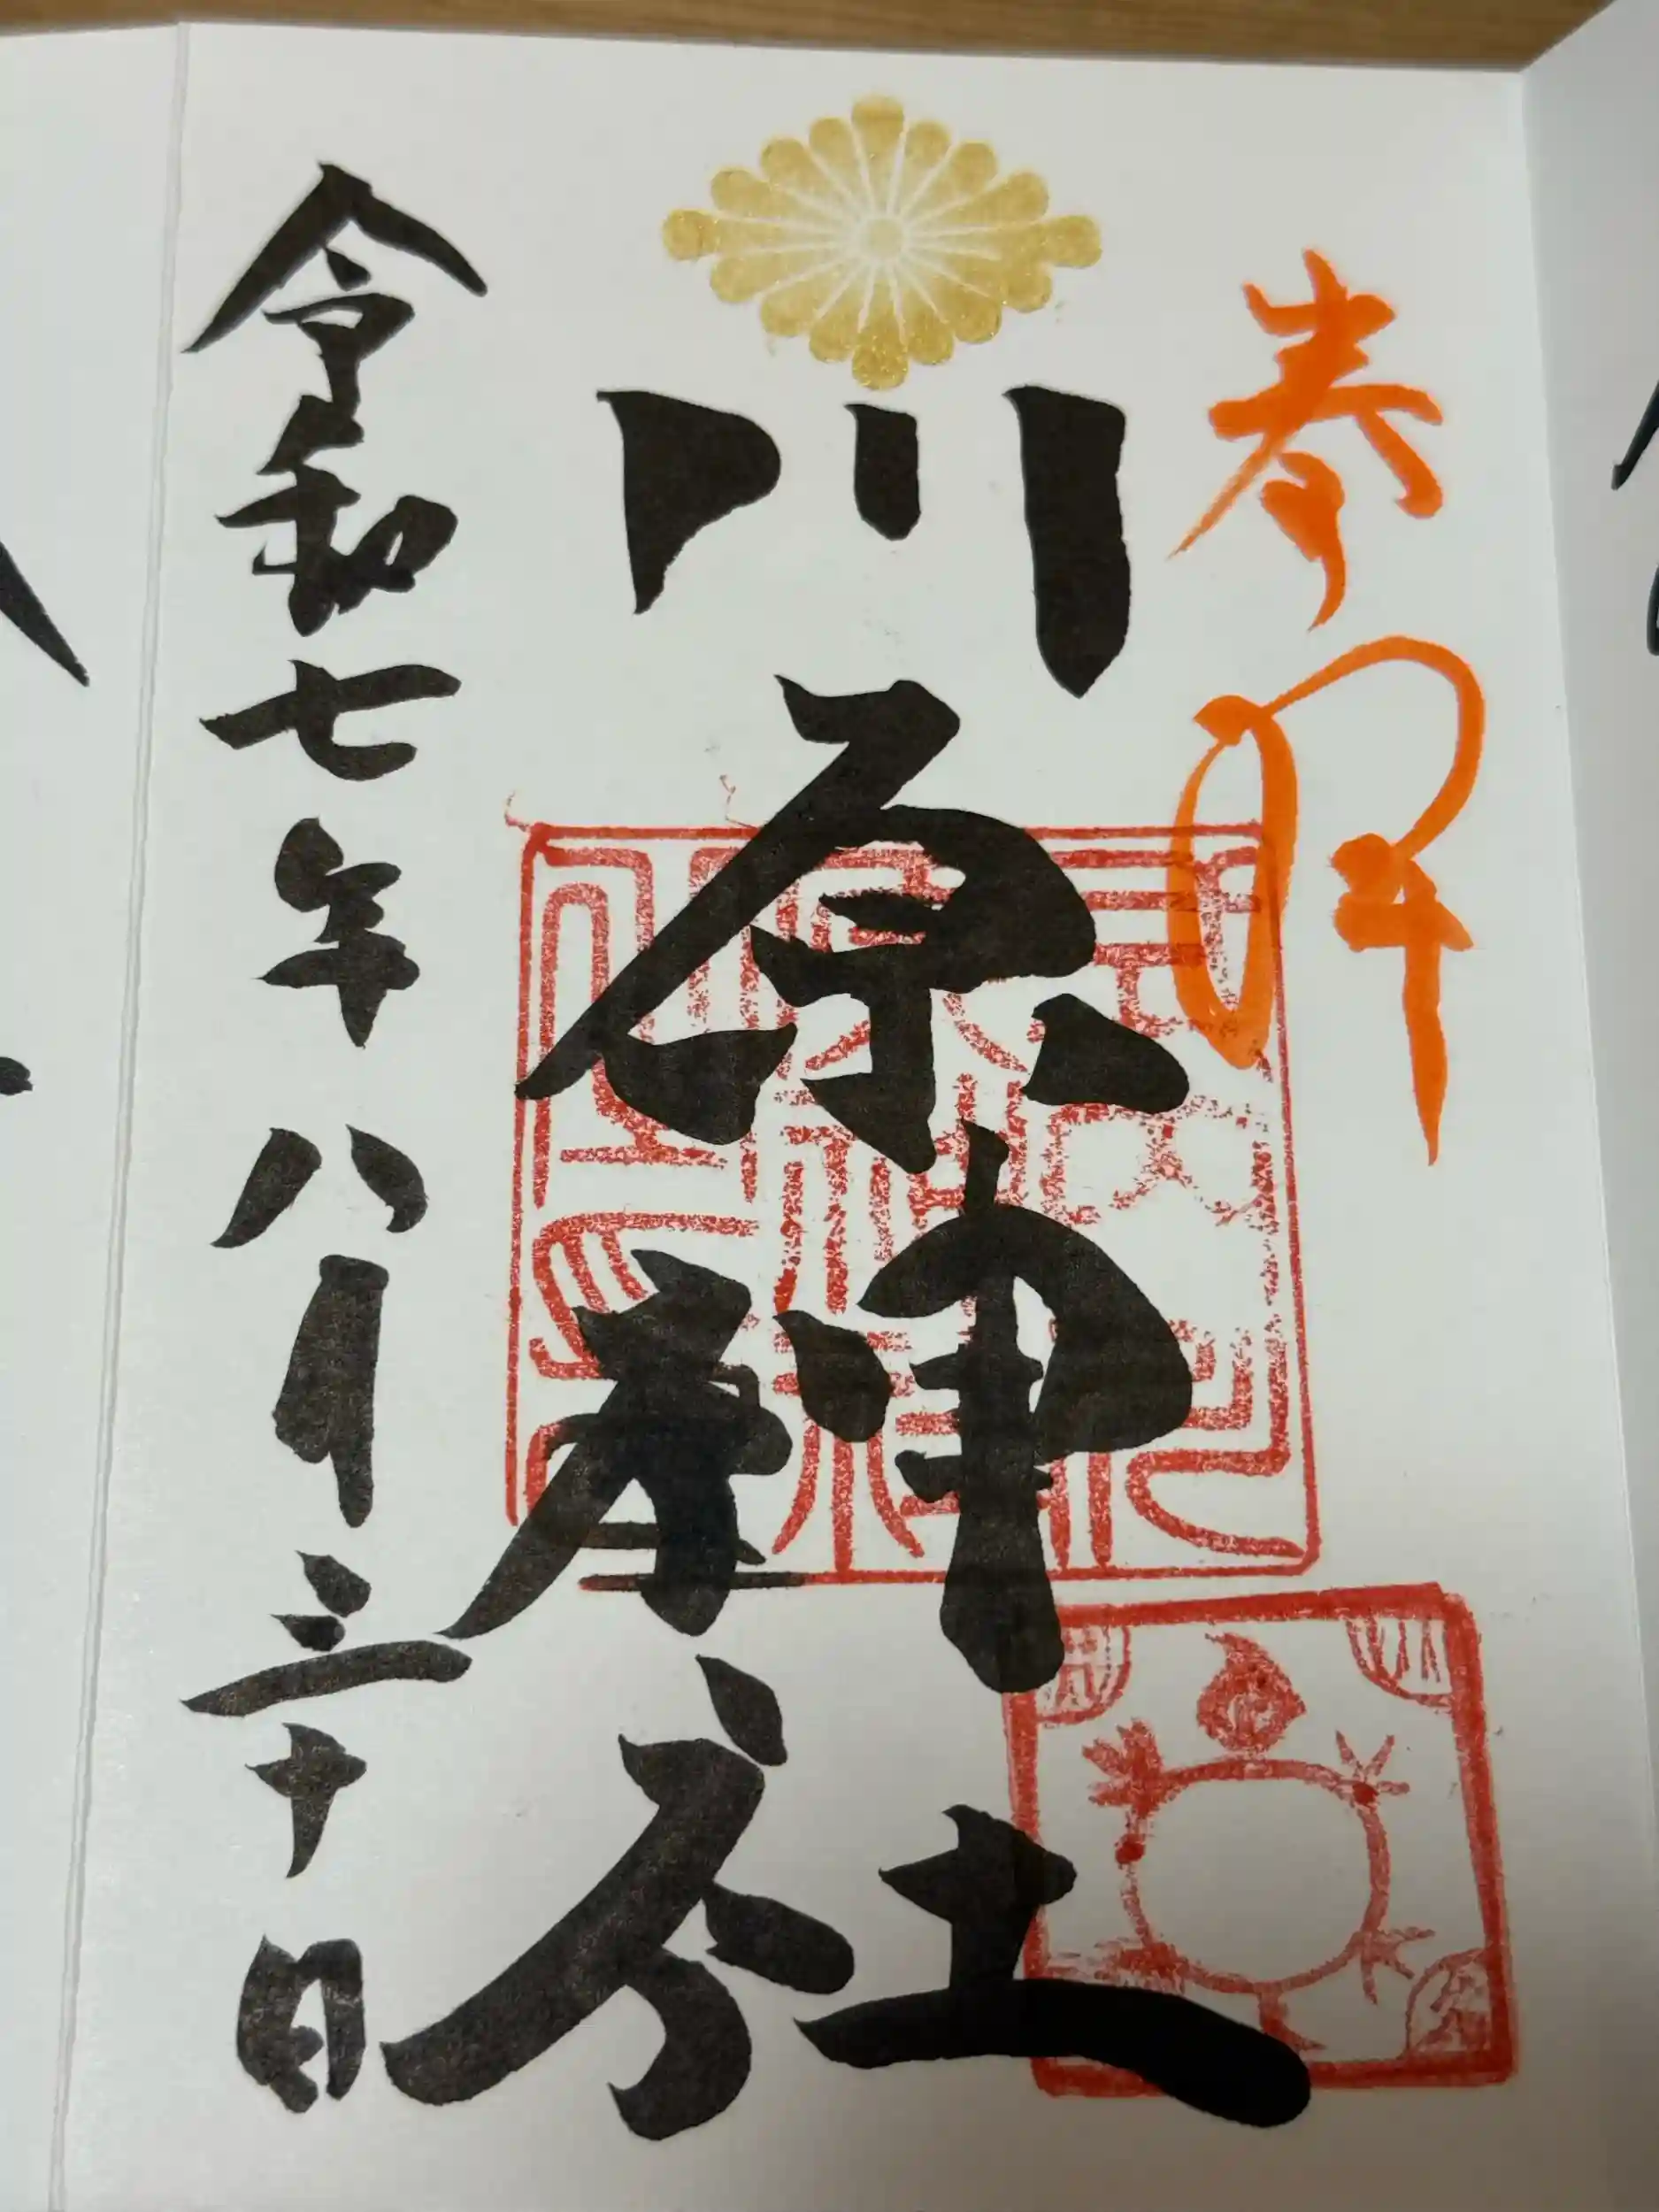 奉拝
川原神社
令和七年八月三十日